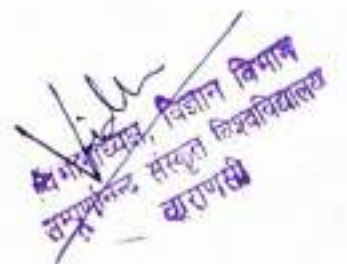 विभागाध्यक्ष, विज्ञान विभाग
सम्पूर्णानन्द संस्कृत विश्वविद्यालय
वाराणसी